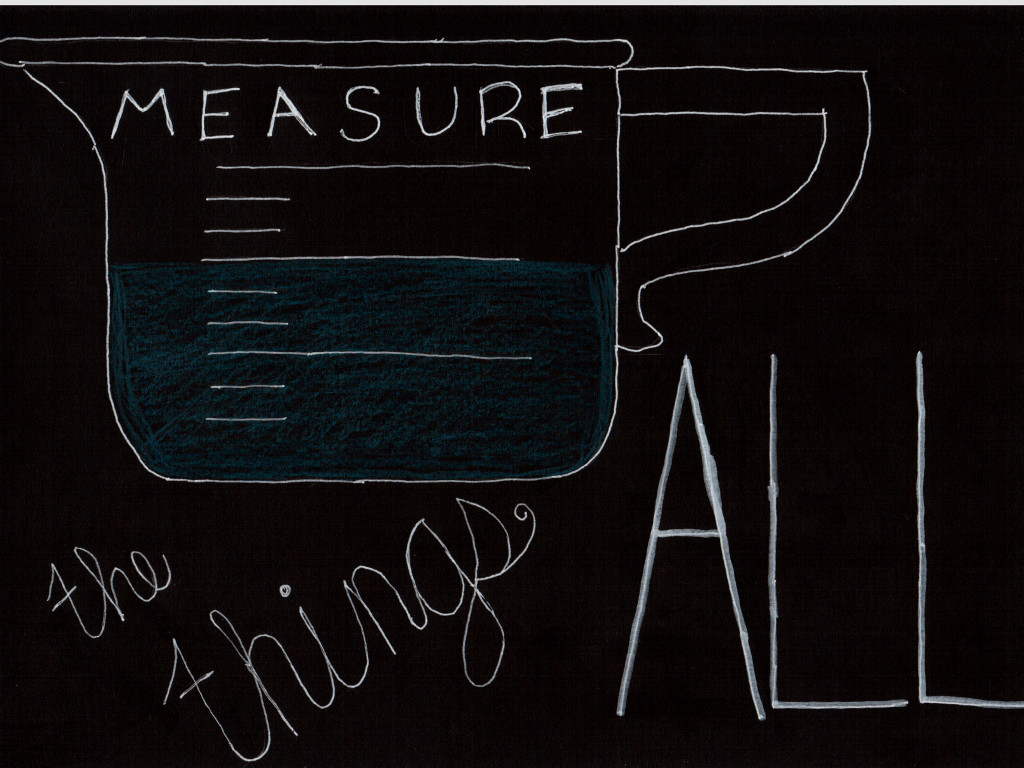 MEASURE
ALL
the
things